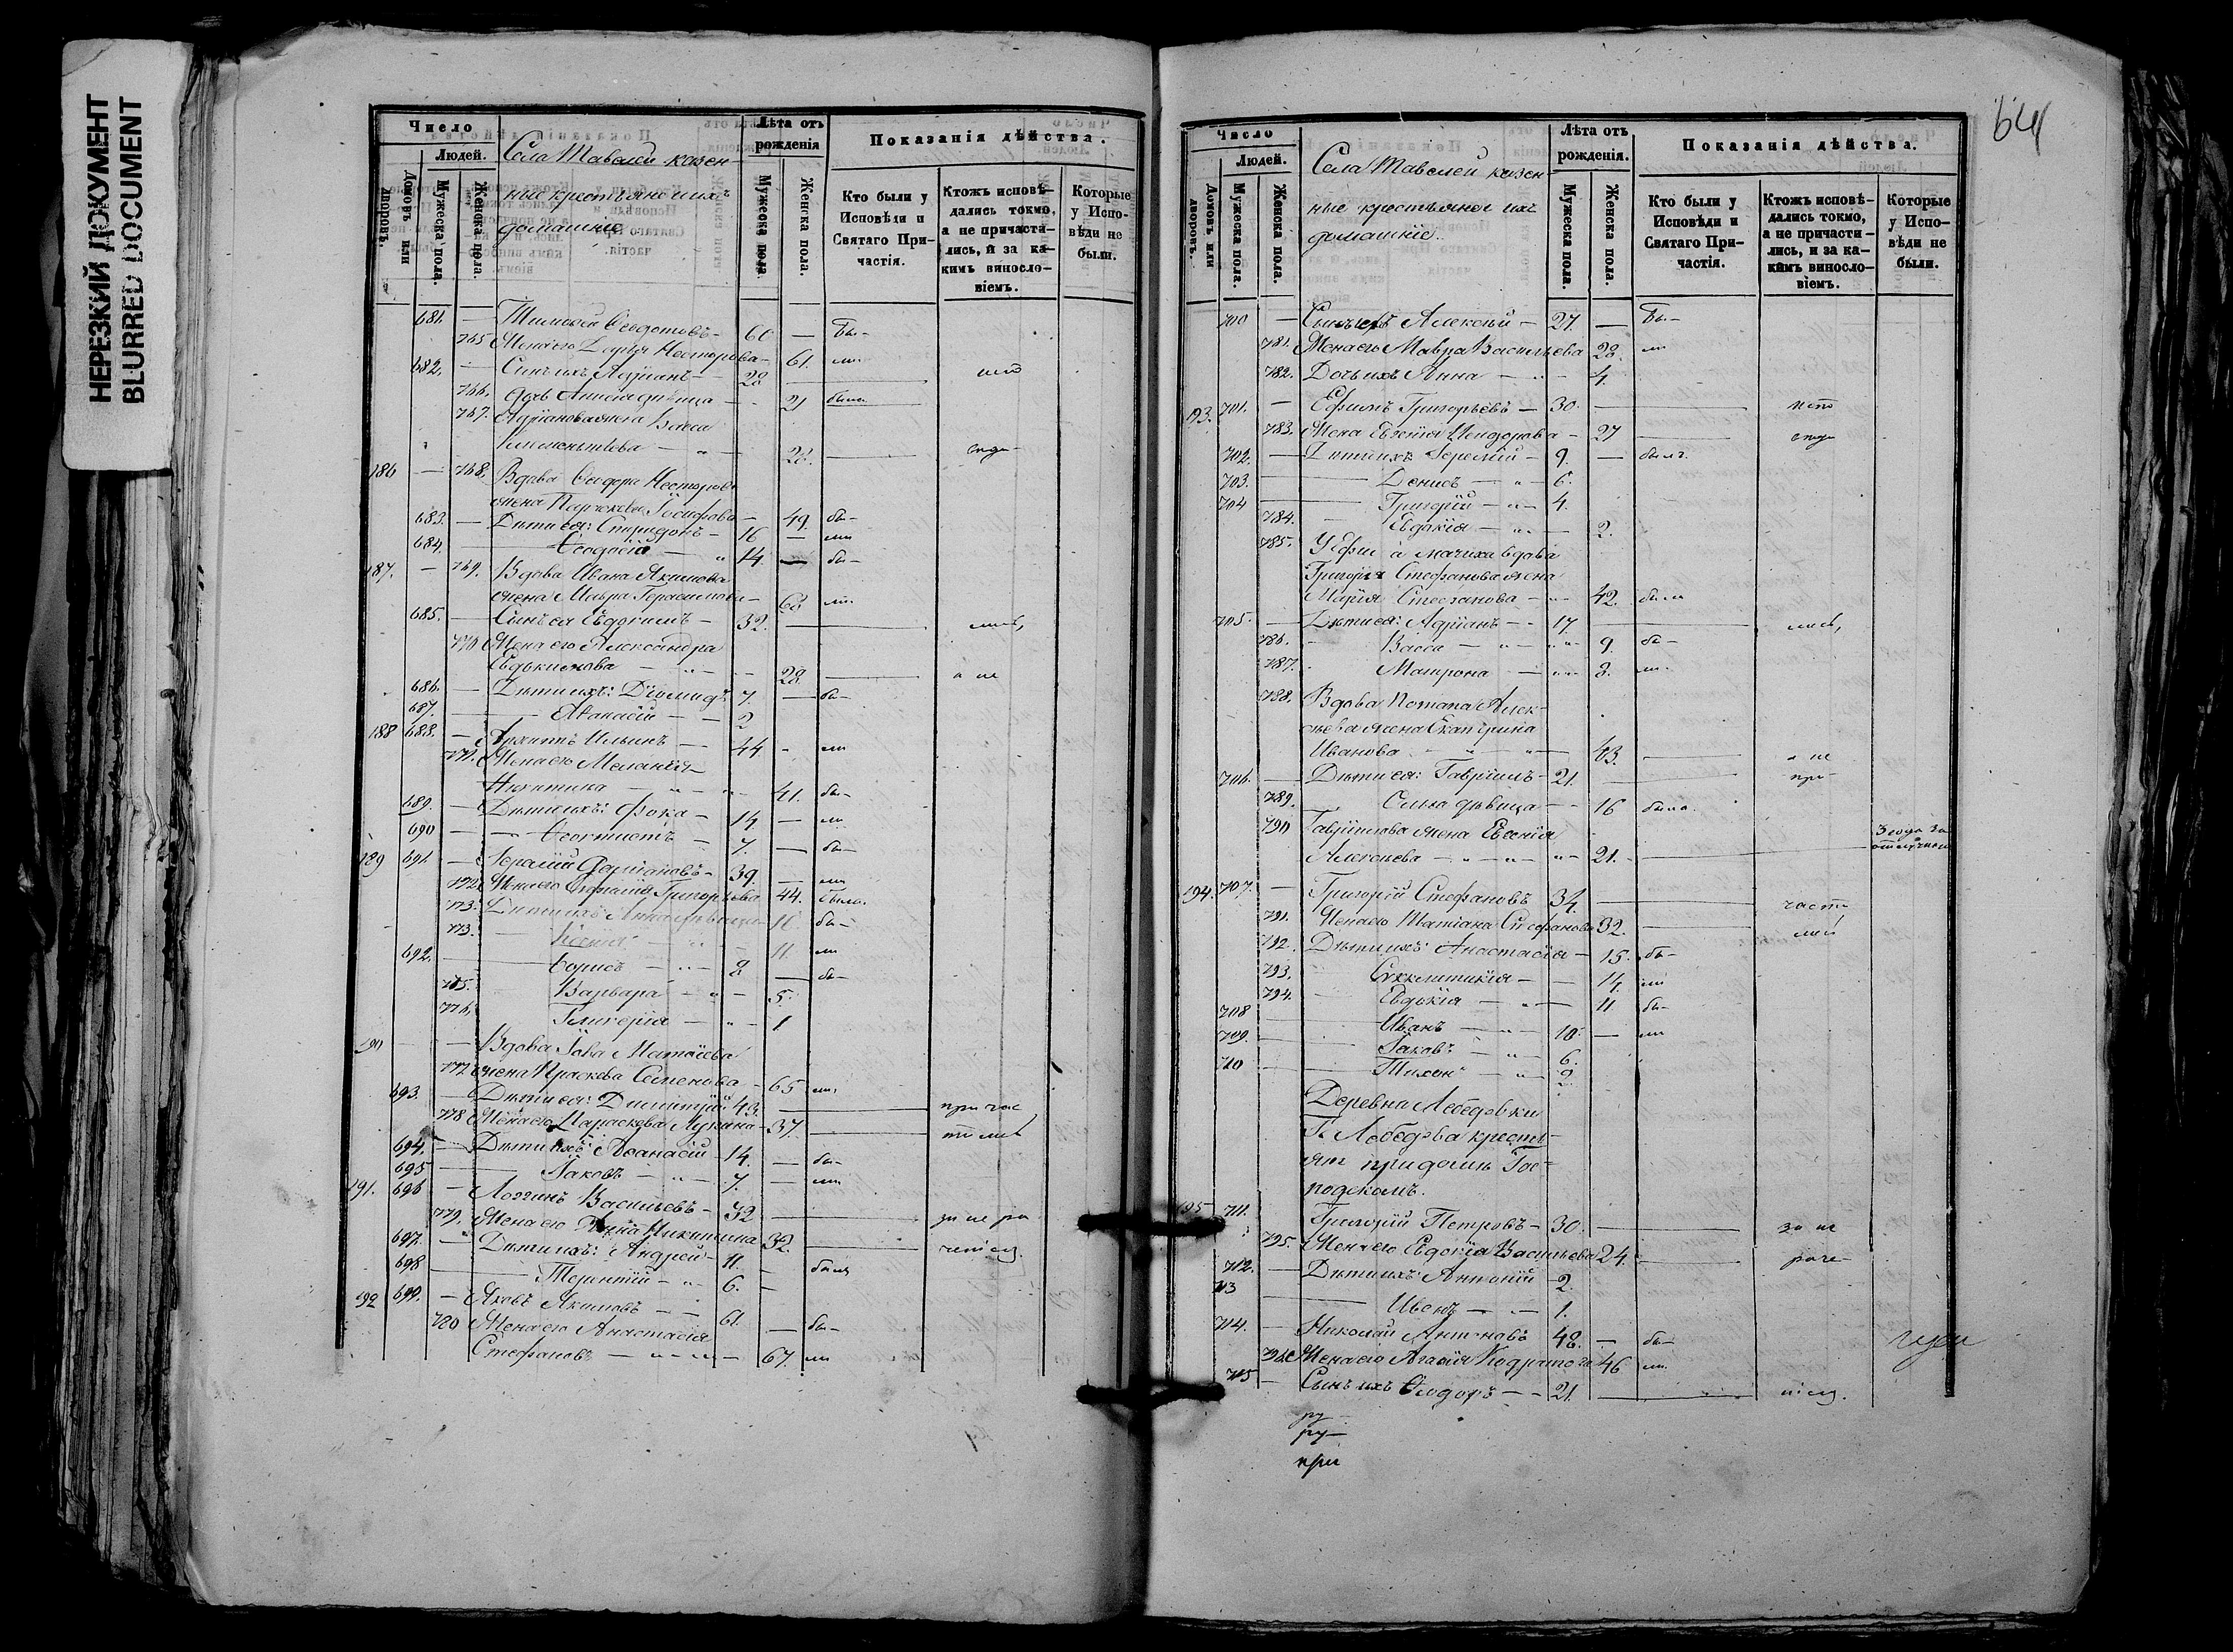 НЕРЕЗКИЙ ДОКУМЕНТ
BLURRED DOCUMENT
Число
Людей.
Домовъ или дворовъ.
Мужеска пола.
Женска пола.
Села Тавелей казен-
ные крестьяне и ихъ
домашніе.
Лѣта отъ рожденія
Мужеска пола.
Женска пола.
Показанія дѣйства.
Кто были у Исповѣди и Святаго Причастія.
Ктожъ исповѣдались токмо, а не причастились, и за какимъ винословіемъ.
Которые у Исповѣди не были.
681. — Тимоѳей Ѳеодотовъ — 60 — бы-
765 Жена его Дарья Несторова — 61. ли
682. — Сынъ ихъ Адріанъ — 28
766. дочь девица — 21 была
767. Адріанова жена Васса
Климентьева — 28.
186 — 768. Вдова Ѳеодора Несторова
жена Парасковья Іосифова — 49. бы-
683. — Дѣти ея: Спиридонъ — 16 — ли
684. Ѳеодосій — 14. — бы-
187. — 769. Вдова Ивана Якимова
жена Мавра Герасимова — 60 ли
685. — Сынъ ея Евдокимъ — 32.
770 Жена его Александра
Евдокимова — 28. а не
686. — Дѣти ихъ: Діомидъ 7. — бы-
687. Аѳанасій — 2
188 688. — Архипъ Ильинъ — 44 - ли
771. Жена его Меланья
Никитина — 41. бы-
689. — Дѣти ихъ: Фока — 14 — ли
690 — Ѳеоктистъ — 7. — бы-
189 691. — Герасим Даміановъ — 39. — ли
172. Жена его Григорьева 44. была.
773. Дѣти ихъ Анна девица бы-
773. Ксенія — 11. ли
692. Борисъ — 8 — бы-
775. Варвара — 5.
776. Гликерія — 1
190 — Вдова Іова Матѳіева
777 жена Праскева Семенова — 65 ли
693. — Дѣти ея: Димитрій 43. причас
778 Жена его Параскева Лукина — 37.
694. — Дѣти ихъ Аѳанасій — 14. — бы-
695 Іаковъ — 7. — ли
191. 696 — Логгинъ Васильевъ — 32 за не ра
779. Жена его Анна Никитина 32.
697. — Дѣти ихъ: Андрей — 11. — были
698 Терентій — 6. —
192 699. — Яковъ Якимовъ — 61. — бы-
780 Жена его Анастасія
Стефановъ — 67. ли
64
Число
Людей.
Домовъ или дворовъ.
Мужеска пола.
Женска пола.
Села Тавелей казен-
ные крестьяне и ихъ
домашніе.
Лѣта отъ рожденія.
Мужеска пола.
Женска пола.
Показанія дѣйства.
Кто были у Исповѣди и Святаго Причастія.
Ктожъ исповѣдались токмо, а не причастились, и за какимъ винословіемъ.
Которые у Исповѣди не были.
700 — Сынъ ихъ Алексѣй — 27. — бы-
781. Жена его Мавра Васильева 28. ли
782. Дочь ихъ Анна — 4.
193. 701. — Ефимъ Григорьевъ — 30. испо
783. Жена Евгенія — 27
702. — Дѣти ихъ Іеремій — 9. — былъ
703. Денисъ — 6.
704 Григорій — 4.
784. Евдокія — 2.
785. У Ефима мачиха вдова
Григорья Стефанова жена
Марія Стефанова — 42. была
705 — Дѣти ея: Адріанъ — 17. лись,
786. Васса — 9. бы-
787. Матрона — 8. ли
788. Вдова Потапа Алек-
сѣева жена Екатерина
Иванова — 43. а не
706. — Дѣти ея: Гавріилъ — 21. при-
789. девица — 16 была.
790 Гавріилова жена Евгенія
Алексѣева — 21.
3 года за
отлучкой
194. 707. — Григорій Стефановъ 34. части
791. Жена его Татіана Стефанова 32.
792. Дѣти ихъ: Анастасія — 15. бы-
793. Сѵнклитикія — 14. ли
794. Евдокія — 11. бы-
708 Иванъ — 10. — ли
709. Іаковъ — 6.
710 Тихонъ — 2
Деревни Лебедовки
Г. Лебедева кресть-
яне при домѣ Гос-
подскомъ.
195 711. Григорій Петровъ — 30. за не
795. Жена его Евдокія Васильева 24. раче-
712. — Дѣти ихъ Антоній — 2.
713 Иванъ — 1.
714. — Николай Антоновъ 48. — бы-
796. Жена его Агаѳія 46 ли
715 — Сынъ ихъ Ѳеодоръ — 21. ніемъ.
ру-
при